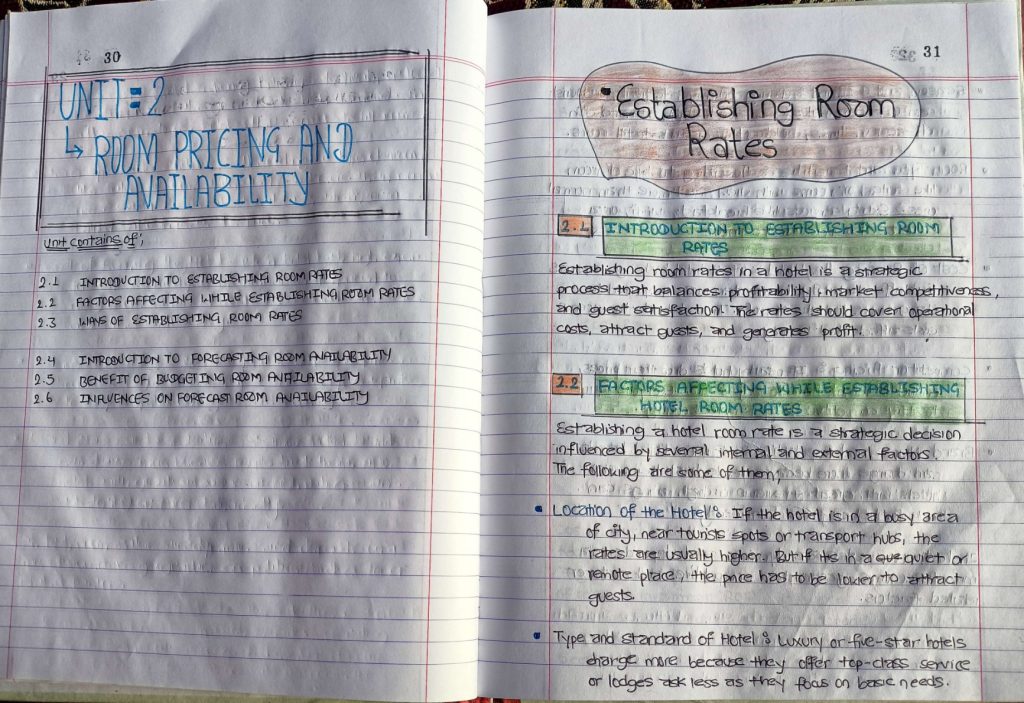 30
UNIT = 2
↳ ROOM PRICING AND
AVAILABILITY
Unit contains of;
2.1 INTRODUCTION TO ESTABLISHING ROOM RATES
2.2 FACTORS AFFECTING WHILE ESTABLISHING ROOM RATES
2.3 WAYS OF ESTABLISHING ROOM RATES
2.4 INTRODUCTION TO FORECASTING ROOM AVAILABILITY
2.5 BENEFIT OF BUDGETING ROOM AVAILABILITY
2.6 INFLUENCES ON FORECAST ROOM AVAILABILITY
31
• Establishing Room
Rates
2.1 INTRODUCTION TO ESTABLISHING ROOM
RATES
Establishing room rates in a hotel is a strategic
process that balances profitability, market competitiveness,
and guest satisfaction. The rates should cover operational
costs, attract guests, and generates profit.
2.2 FACTORS AFFECTING WHILE ESTABLISHING
HOTEL ROOM RATES
Establishing a hotel room rate is a strategic decision
influenced by several internal and external factors.
The following are some of them;
• Location of the Hotel: If the hotel is in a busy area
of city, near tourists spots or transport hubs, the
rates are usually higher. But if its in a quiet or
remote place, the price has to be lower to attract
guests.
• Type and Standard of Hotel: Luxury or five-star hotels
charge more because they offer top-class service
or lodges ask less as they focus on basic needs.